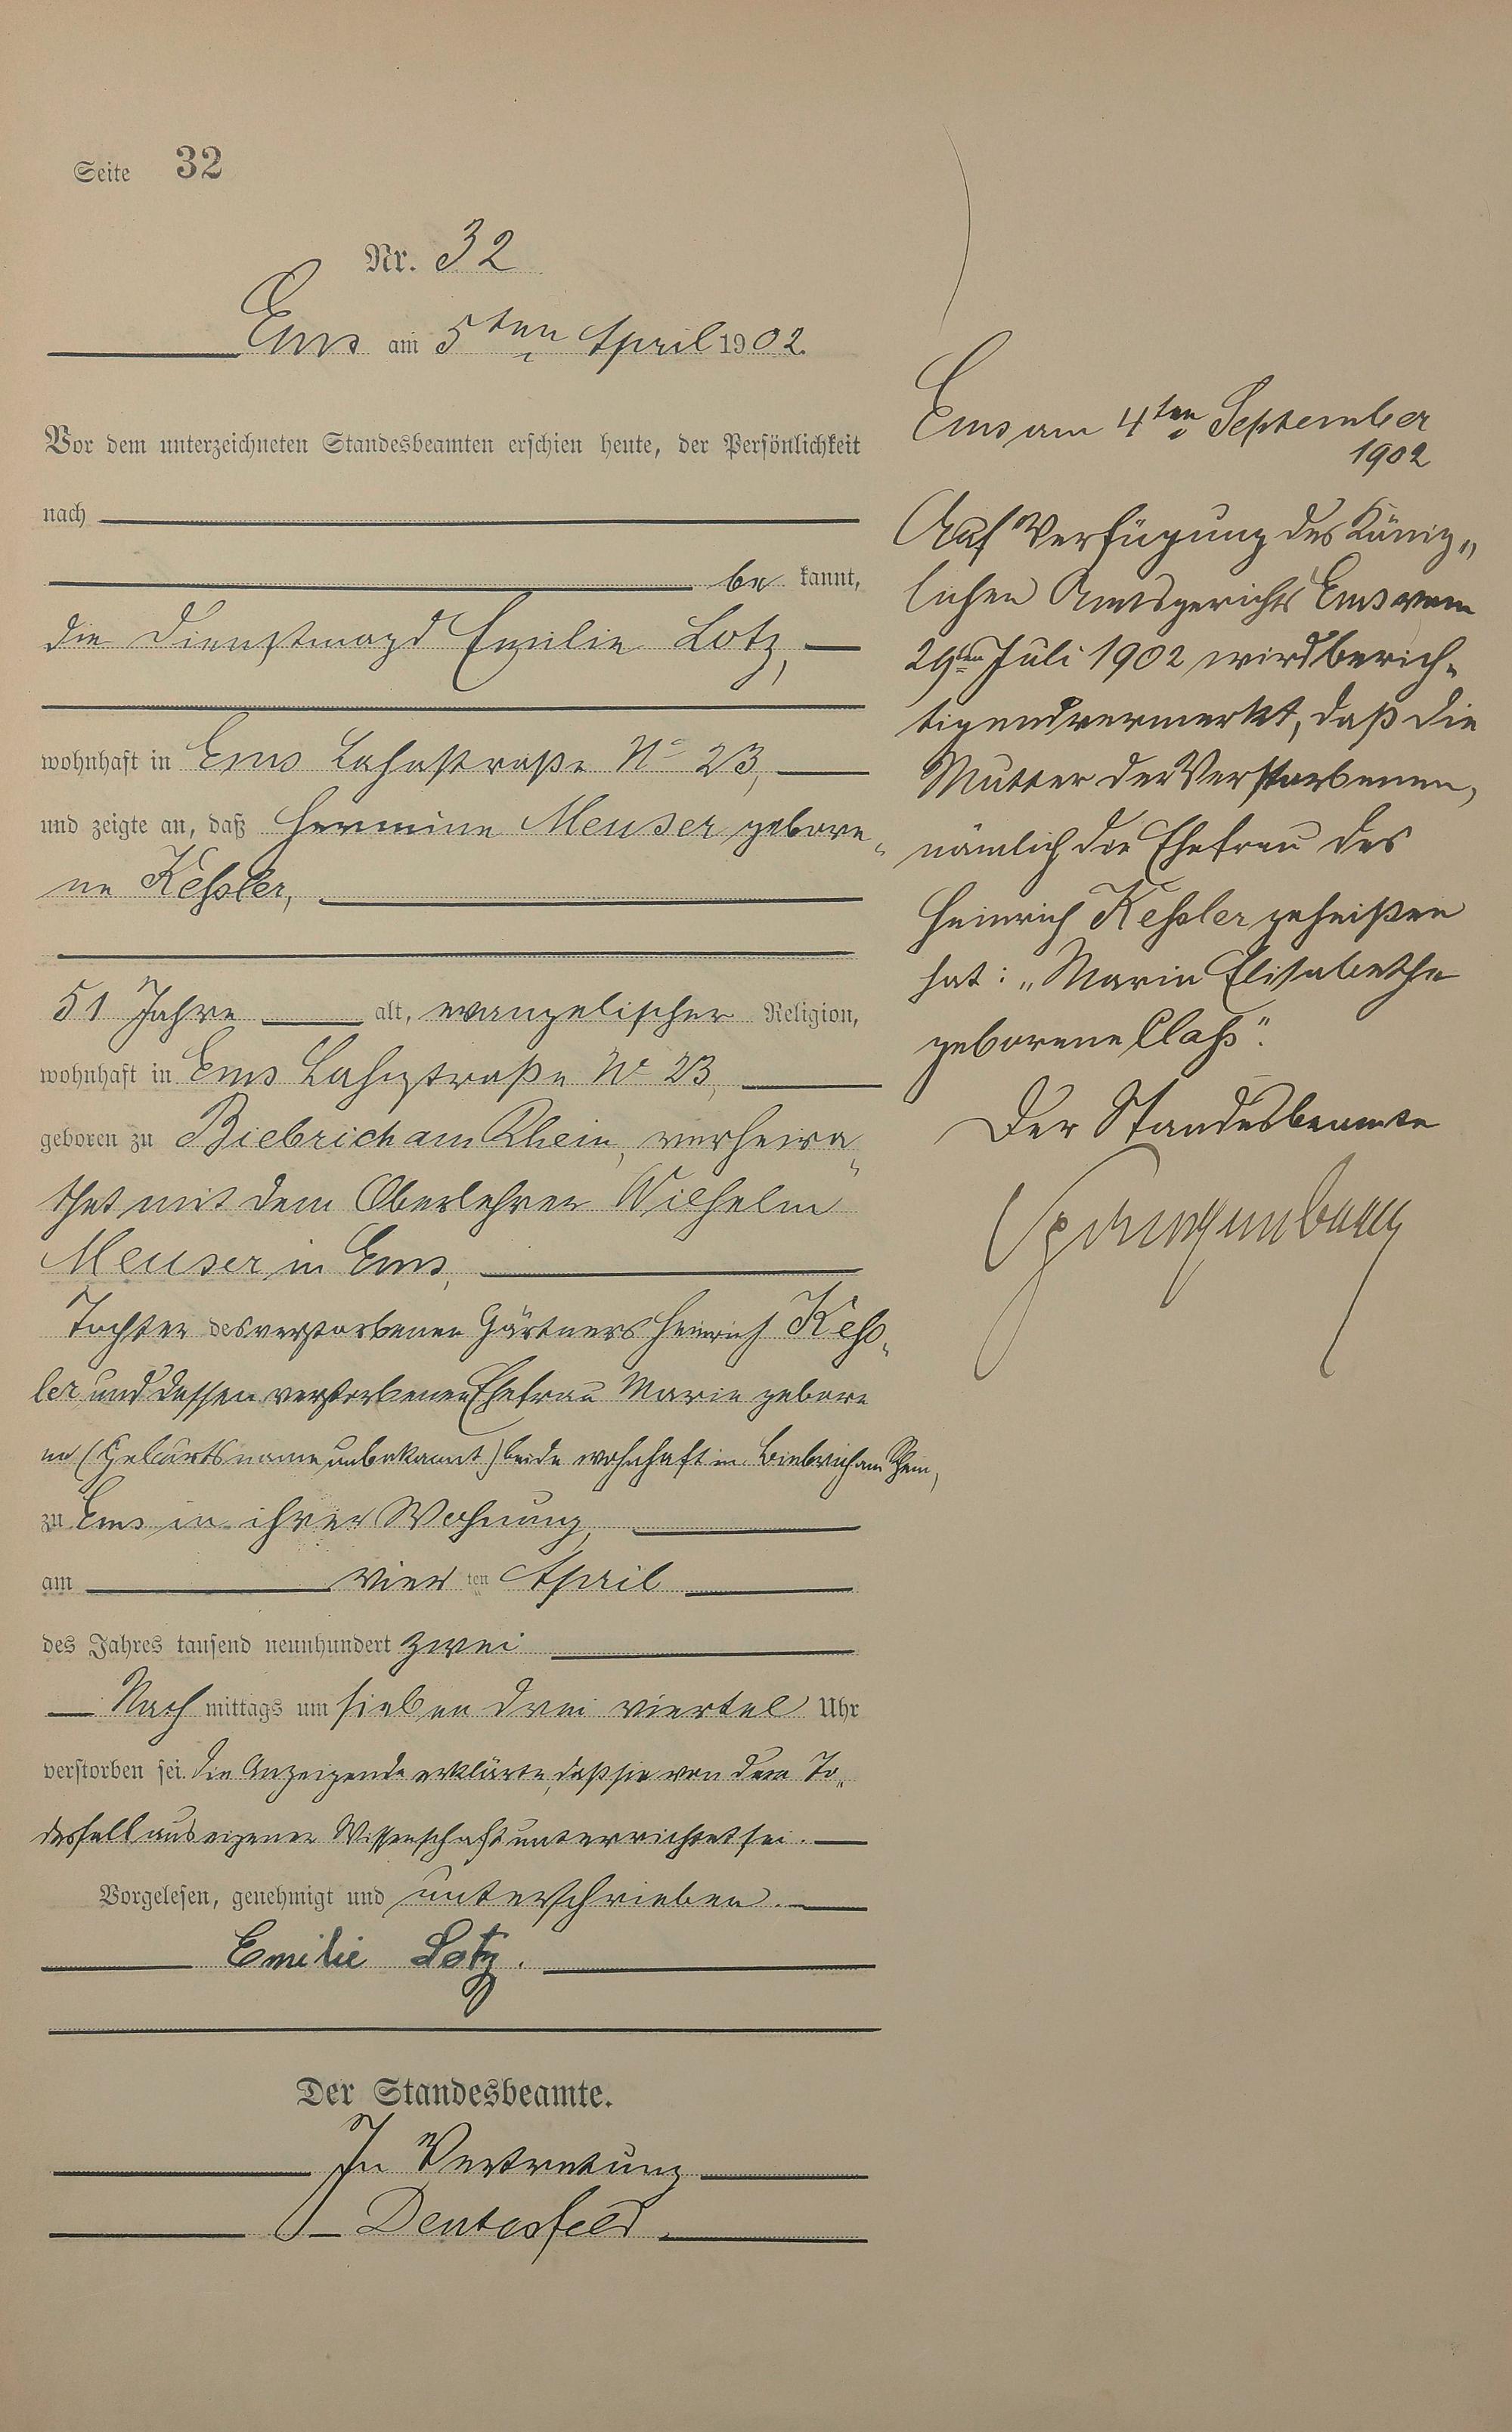 Seite 32
Nr. 32
Ems am 5ten April 1902.
Vor dem unterzeichneten Standesbeamten erschien heute, der Persönlichkeit
nach
be kannt,
die Dienstmagd Emilie Lotz,
wohnhaft in Ems Lahnstraße No 23,
und zeigte an, daß Hermine Meuser gebore„
ne Kessler,
51 Jahre alt, evangelischer Religion,
wohnhaft in Ems Lahnstraße No 23,
geboren zu Biebrich am Rhein, verheira„
thet mit dem Oberlehrer Wilhelm
Meuser in Ems,
Tochter des verstorbenen Gärtners Heinrich Kess„
ler und dessen verstorbenen Ehefrau Marie gebore
ne (Geburtsname unbekannt) beide wohnhaft in Biebrich am Rhein,
zu Ems in ihrer Wohnung,
am vier ten April
des Jahres tausend neunhundert zwei
Nach mittags um sieben drei viertel Uhr
verstorben sei. Die Anzeigende erklärte, daß sie von dem To„
desfall aus eigener Wissenschaft unterrichtet sei.
Vorgelesen, genehmigt und unterschrieben.
Emilie Lotz.
Der Standesbeamte.
In Vertretung
Ems am 4ten September
1902
Auf Verfügung des König„
lichen Amtsgerichts Ems vom
29ten Juli 1902 wird berich„
tigend vermerkt, daß die
Mutter der Verstorbenen,
nämlich die Ehefrau des
Heinrich Kessler geheißen
hat: „Marie Elisabethe
geborene Class".
Der Standesbeamte